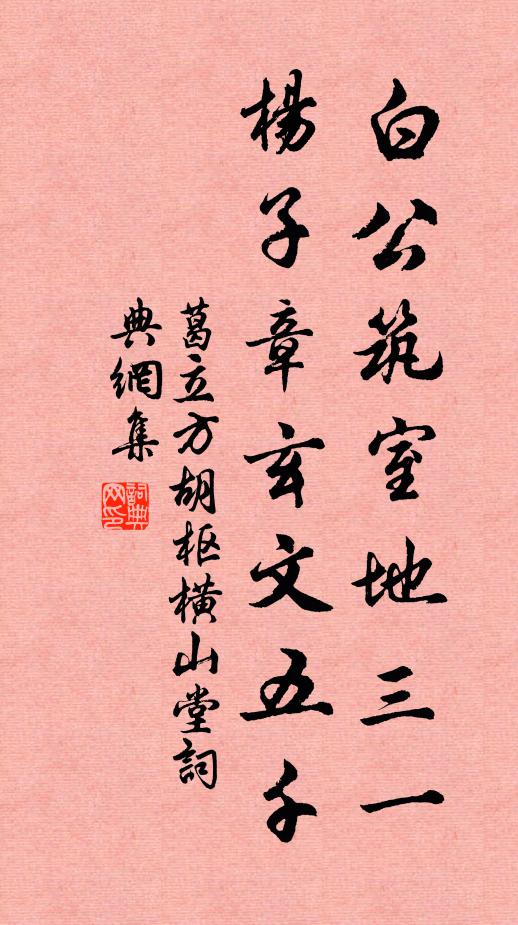 白公筑室地三一
楊子章玄文五千
葛立方胡枢橫山堂詞
典網集
詞典
网印